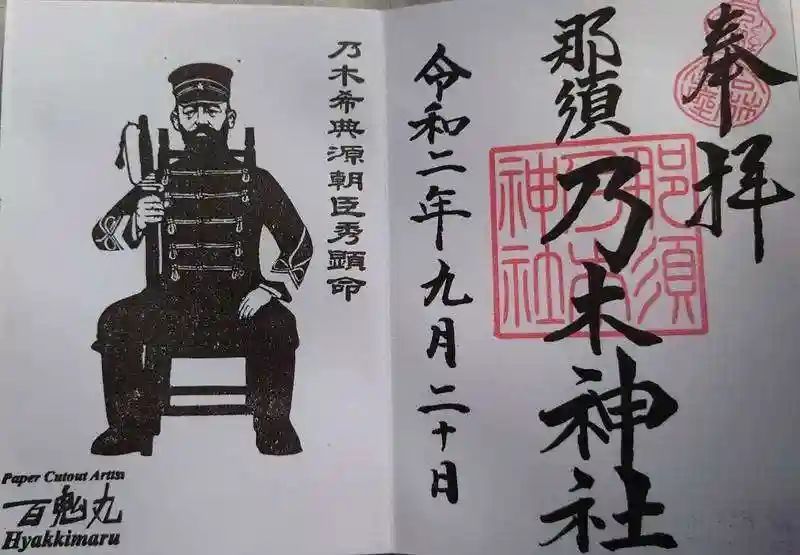 奉拝
那須乃木神社
那須乃木神社
令和二年九月二十日
乃木希典源朝臣秀顕命
Paper Cutout Artist
百鬼丸
Hyakkimaru